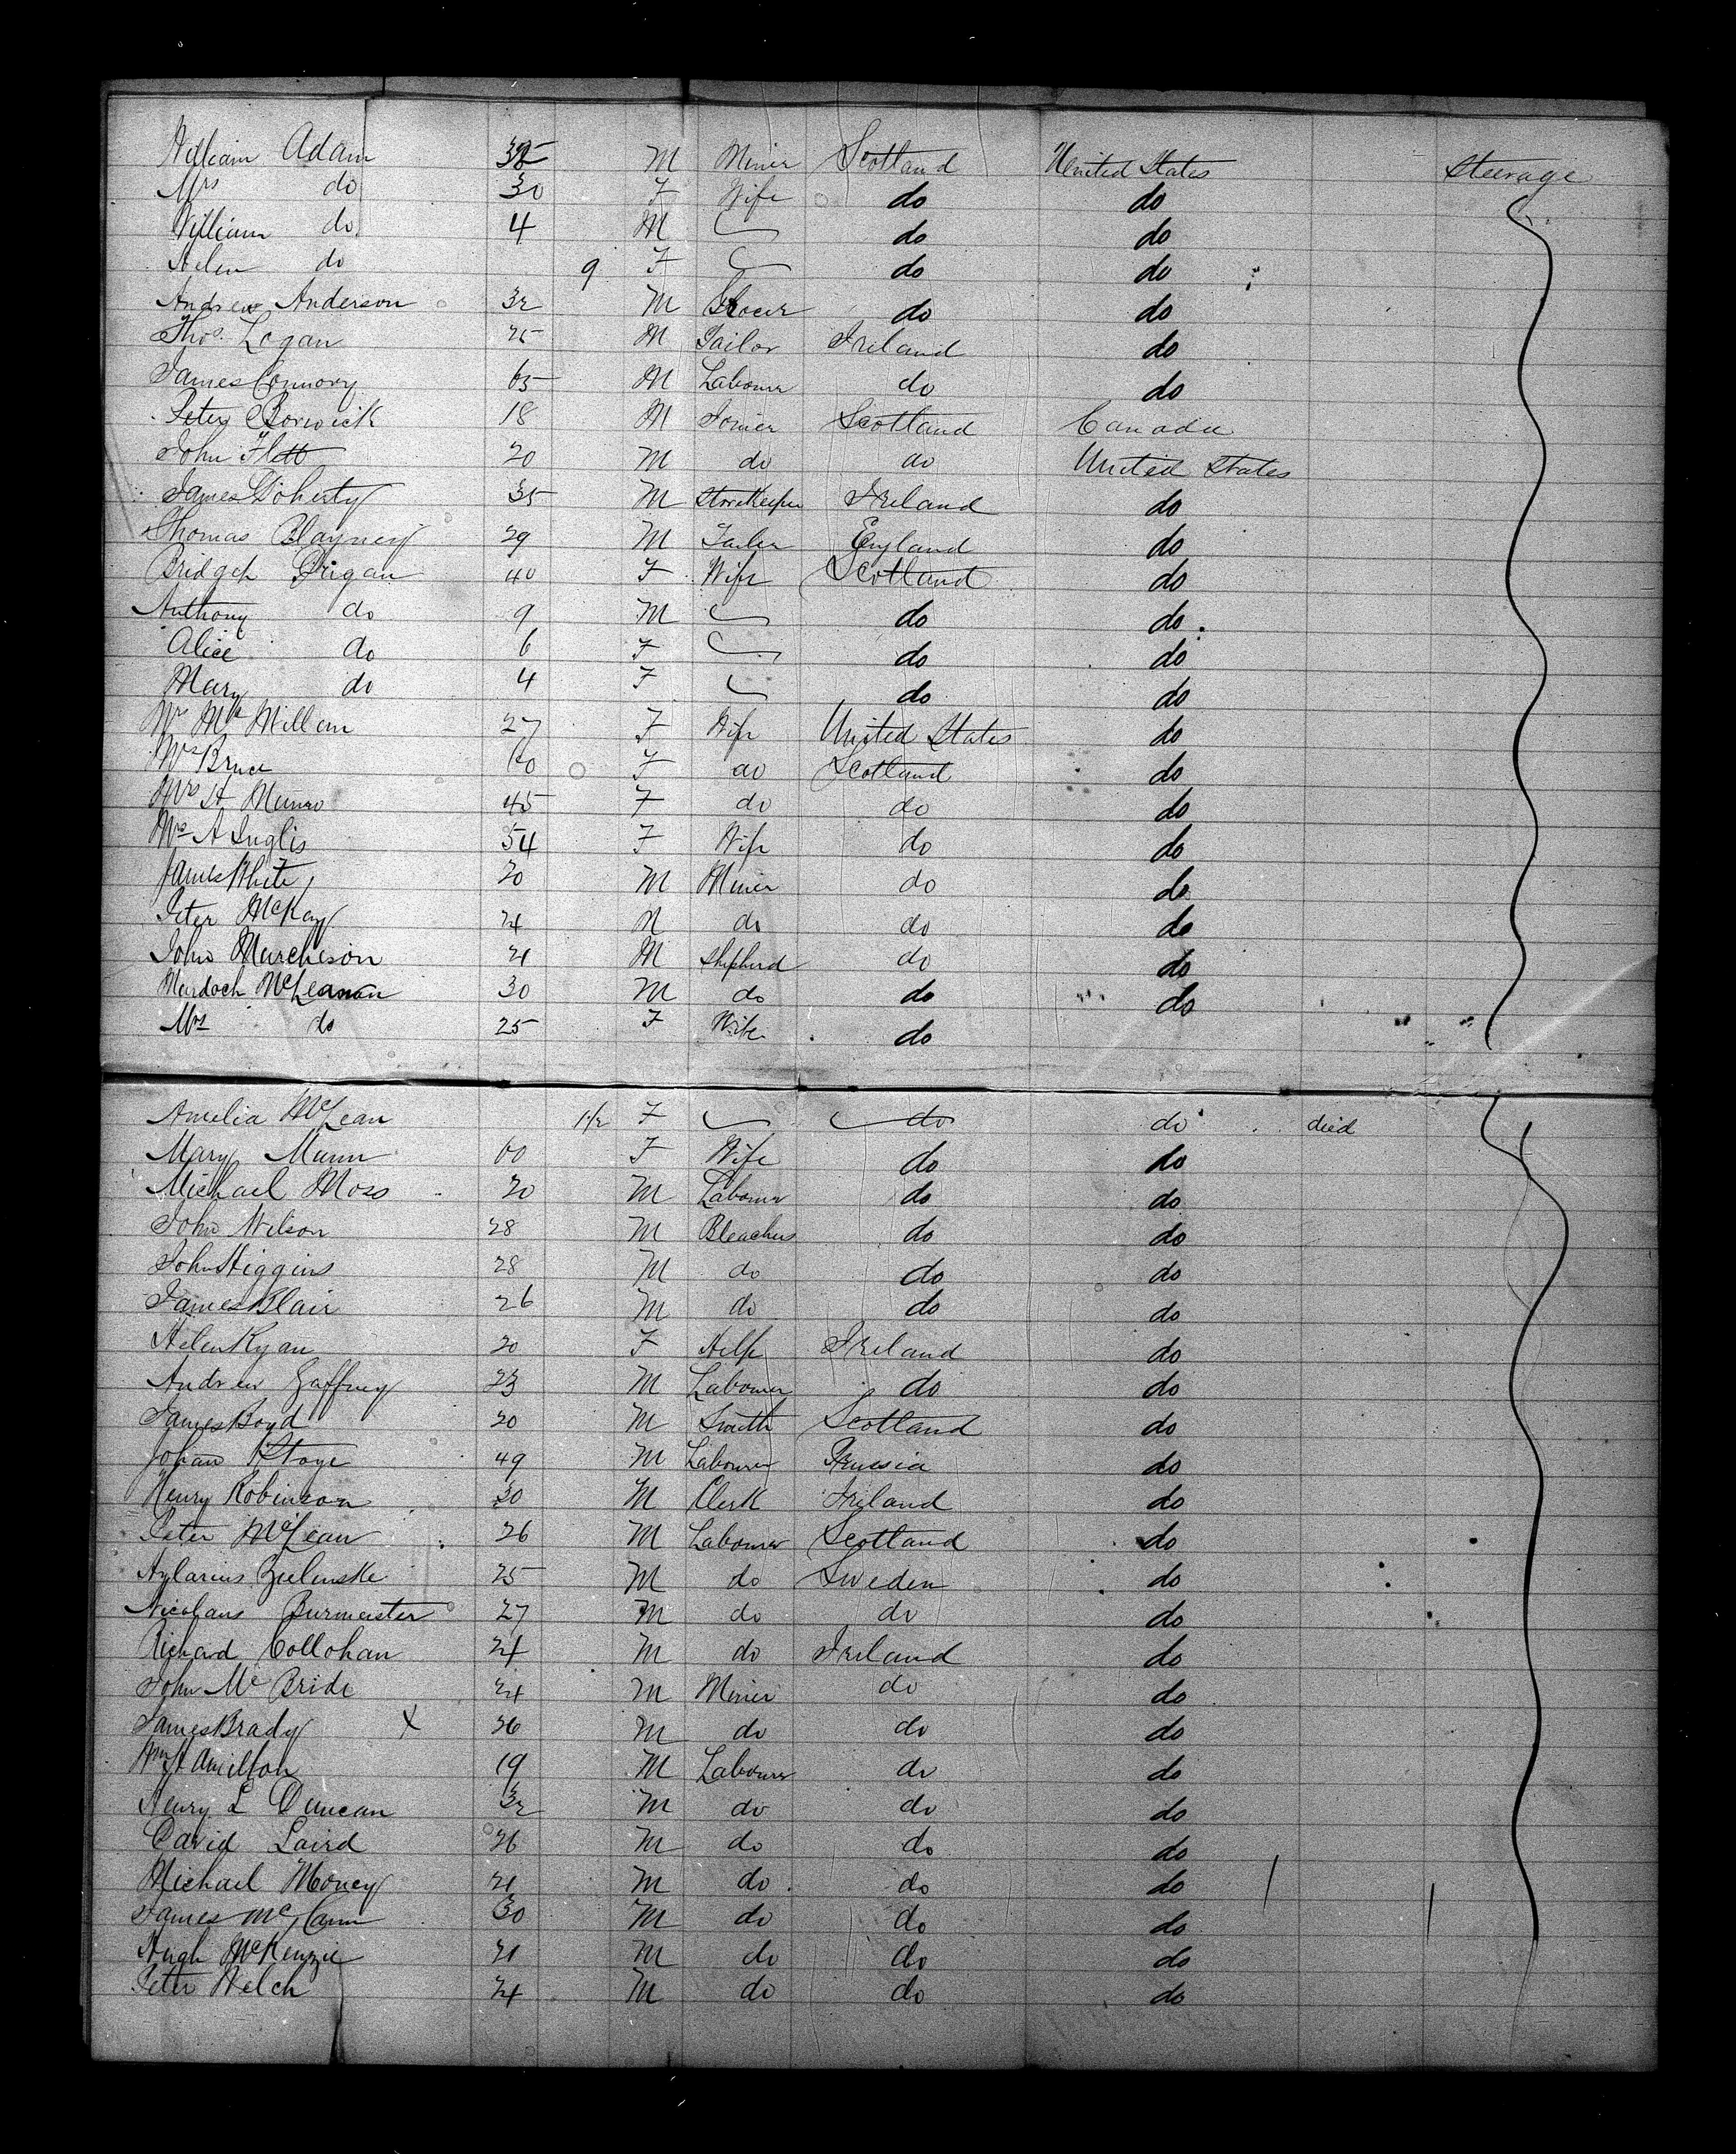 William Adam 32 M Miner Scotland United States Steerage
Mrs do 30 F Wife do do
William do 4 M do do
Helen do 9 F do do
Andrew Anderson 32 M Grocer do do
Thos. Logan 25 M Tailor Ireland do
James Connory 65 M Labourer do do
Peter Borwick 18 M Joiner Scotland Canada
John Flett 20 M do do United States
James Doherty 35 M Storekeeper Ireland do
Thomas Blayney 29 M England do
Bridget 40 F Wife Scotland do
Anthony do 9 M do do
Alice do 6 F do do
Mary do 4 F do do
McMillan 27 F Wife United States do
Mrs Bruce 60 F do Scotland do
Mrs H Munro 45 F do do do
Mrs A Inglis 54 F Wife do do
James White 20 M Miner do do
Peter McKay 24 M do do do
John Murcheson 21 M Shepherd do do
Murdoch McLennan 30 M do do do
Mrs do 25 F Wife do
Amelia McLean 1/2 F do do died
Mary Munn 60 F Wife do do
Michael Moss 20 M Labourer do do
John Wilson 28 M Bleacher do do
John Higgins 28 M do do do
James Blair 26 M do do do
Helen Ryan 20 F Help Ireland do
Andrew Gaffney 23 M Labourer do do
James Boyd 20 M Smith Scotland do
Johan 49 M Labourer Prussia do
Henry Robinson 30 M Clerk Ireland do
Peter McLean 26 M Labourer Scotland do
Hylarius Zielenske 25 M do Sweden do
Nicolaus Burmeister 27 M do do do
Richard Collohan 24 M do Ireland do
John McBride 24 M Miner do do
James Brady X 26 M do do do
Wm Hamilton 19 M Labourer do do
Henry L Duncan 32 M do do do
David Laird 26 M do do do
Michael Money 21 M do do do
James McCann 30 M do do do
Hugh McKenzie 21 M do do do
Peter Welch 24 M do do do